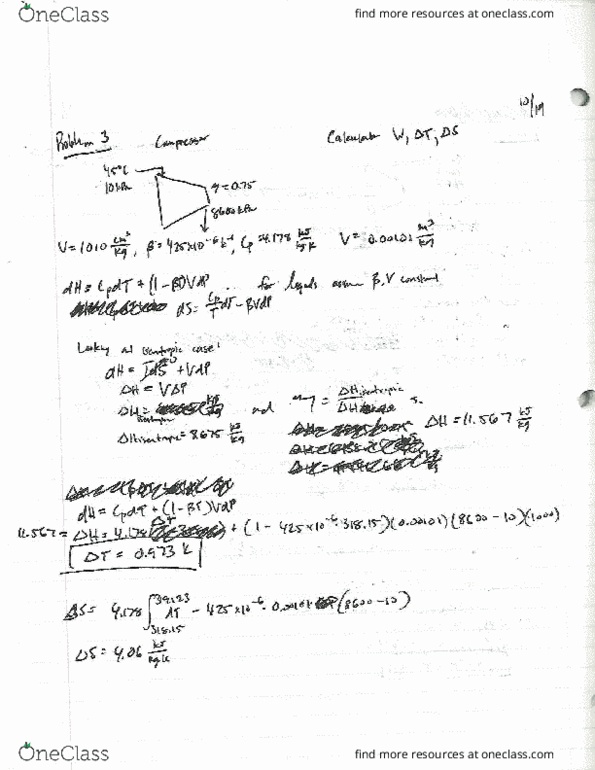 OneClass
find more resources at oneclass.com
10/19
Problem 3 Compressor Calculate W, ΔT, ΔS
45°C
10 kPa
η = 0.75
8600 kPa
V = 1010 cm³/kg, β = 425x10⁻⁶ K⁻¹, Cp = 4.178 kJ/kg K V = 0.00101 m³/kg
dH = CpdT + (1 - βT)VdP ... for liquids assume β, V constant
dS = Cp/T dT - βVdP
Looking at isentropic case:
dH = TdS + VdP
ΔH = VΔP
ΔH and η = ΔH isentropic / ΔH
ΔH isentropic = 8.675 kJ/kg ΔH = 11.567 kJ/kg
dH = CpdT + (1 - βT)VdP
11.567 = ΔH = 4.178 ΔT + (1 - 425x10⁻⁶ · 318.15)(0.00101)(8600 - 10)(1000)
ΔT = 0.973 K
ΔS = 4.178 ∫ dT - 425x10⁻⁶ · 0.00101 (8600 - 10)
318.15
ΔS = 4.06 kJ/kg K
OneClass
find more resources at oneclass.com